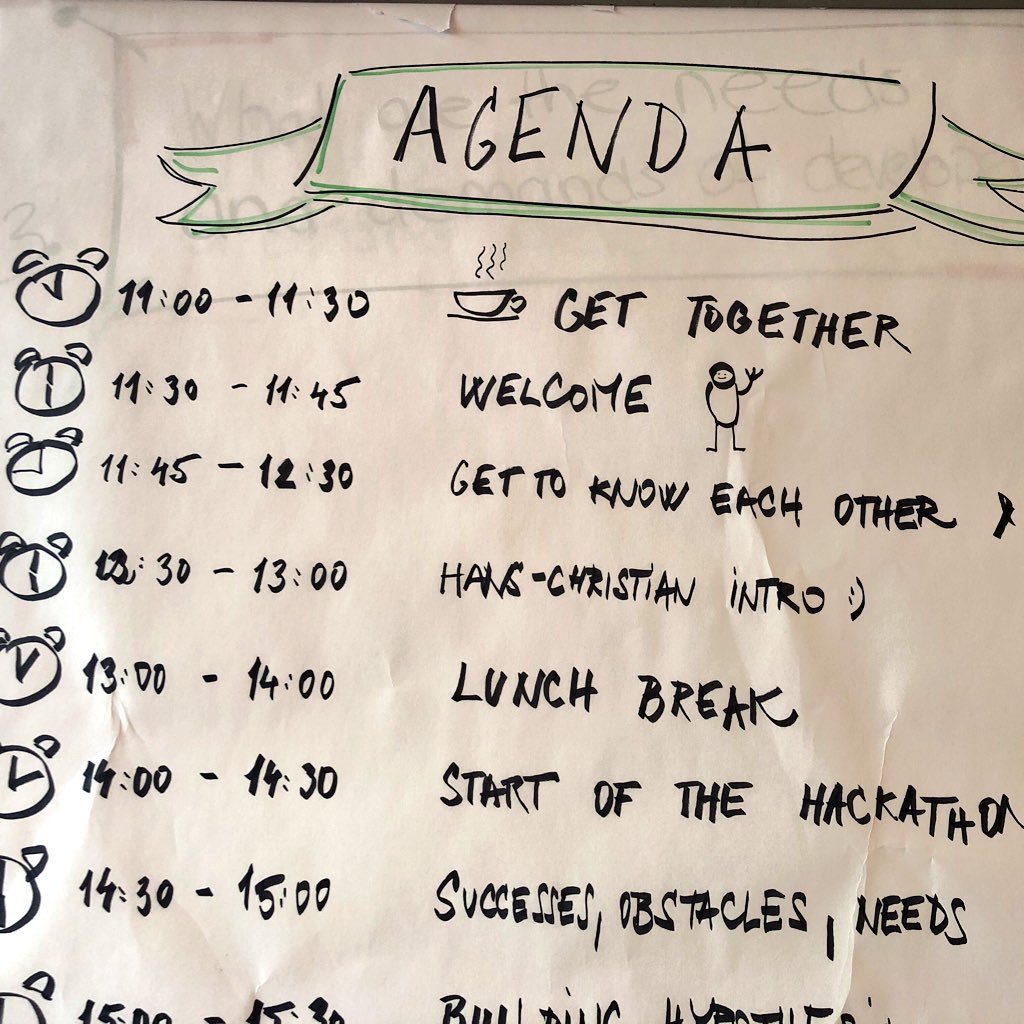 AGENDA
11:00 - 11:30 GET TOGETHER
11:30 - 11:45 WELCOME
11:45 - 12:30 GET TO KNOW EACH OTHER
12:30 - 13:00 HANS-CHRISTIAN INTRO :)
13:00 - 14:00 LUNCH BREAK
14:00 - 14:30 START OF THE HACKATHON
14:30 - 15:00 SUCCESSES, OBSTACLES, NEEDS
15:00 - 15:30 BUILDING